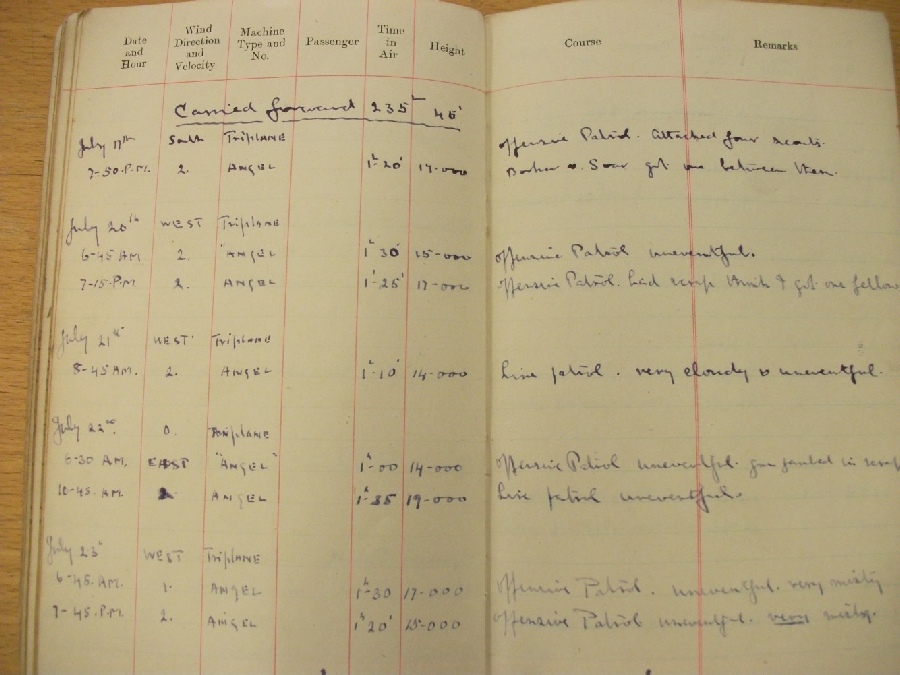 Date and Hour Wind Direction and Velocity Machine Type and No. Passenger Time in Air Height Course Remarks
Carried forward 235ʰ 45'
July 17th South TRIPLANE Offensive Patrol. Attached four scouts.
7-50.P.M. 2. ANGEL 1ʰ 20' 17-000 & Soar got one between them.
July 20th WEST TRIPLANE
6-45 AM 2. ANGEL 1ʰ 30' 15-000 Offensive Patrol uneventful.
7-15.P.M 2. ANGEL 1ʰ-25' 17-000 Offensive Patrol. had scrap think I got one fellow
July 21st WEST Triplane
8-45 AM. 2. ANGEL 1ʰ-10' 14-000 Line patrol. very cloudy & uneventful.
July 22nd 0. Triplane
6-30 AM. EAST "ANGEL" 1ʰ-00 14-000 Offensive Patrol uneventful. gun jambed in scrap
10-45. AM. 2 ANGEL 1ʰ-35 19-000 Line patrol uneventful.
July 23d WEST TRIPLANE
6-45. AM. 1. ANGEL 1ʰ-30 17-000 Offensive Patrol. uneventful. very misty
7-45. P.M. 2. ANGEL 1ʰ 20' 15-000 Offensive Patrol uneventful. very misty.